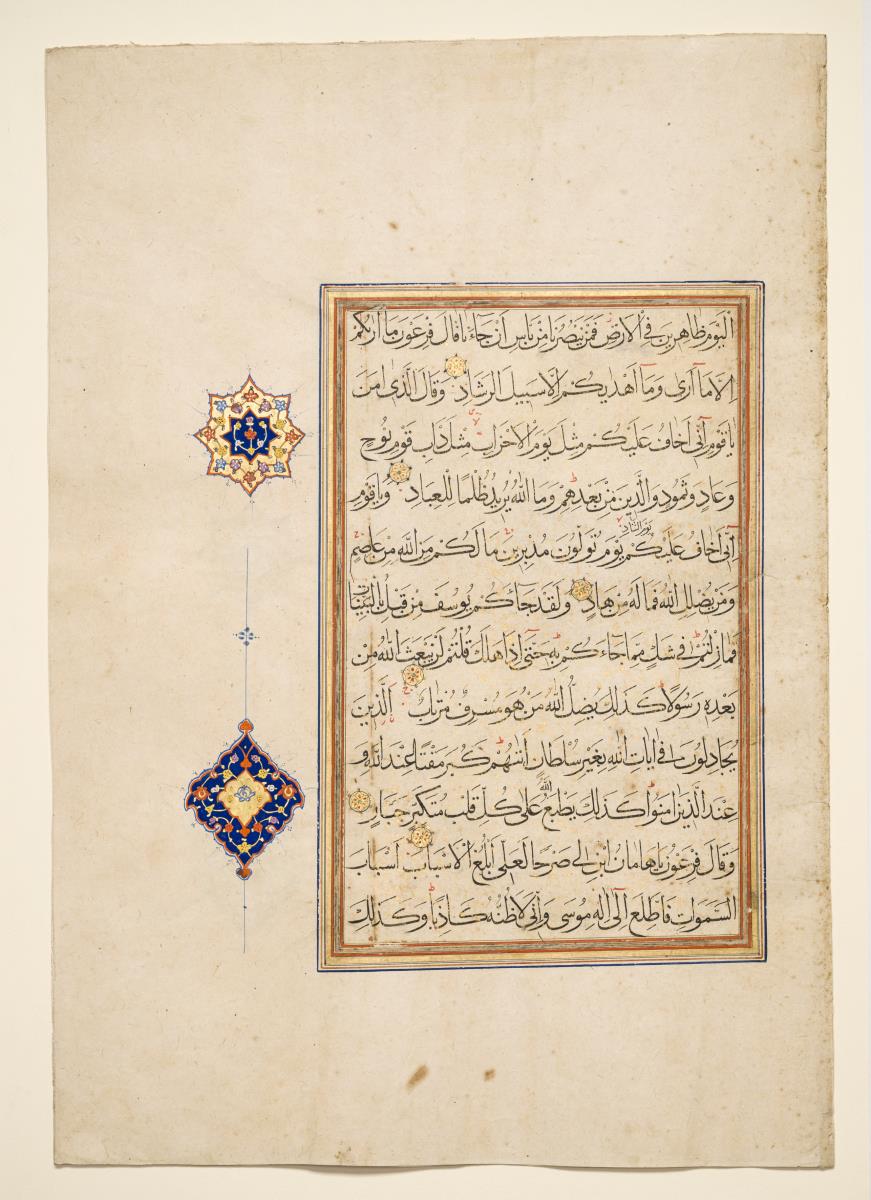 الْيَوْمَ ظَاهِرِينَ فِي الْأَرْضِ فَمَنْ يَنْصُرُنَا مِنْ بَأْسِ اللهِ إِنْ جَاءَنَا قَالَ فِرْعَوْنُ مَا أُرِيكُمْ
إِلَّا مَا أَرَى وَمَا أَهْدِيكُمْ إِلَّا سَبِيلَ الرَّشَادِ وَقَالَ الَّذِي آمَنَ
يَا قَوْمِ إِنِّي أَخَافُ عَلَيْكُمْ مِثْلَ يَوْمِ الْأَحْزَابِ مِثْلَ دَأْبِ قَوْمِ نُوحٍ
وَعَادٍ وَثَمُودَ وَالَّذِينَ مِنْ بَعْدِهِمْ وَمَا اللهُ يُرِيدُ ظُلْمًا لِلْعِبَادِ وَيَا قَوْمِ
إِنِّي أَخَافُ عَلَيْكُمْ يَوْمَ التَّنَادِ يَوْمَ تُوَلُّونَ مُدْبِرِينَ مَا لَكُمْ مِنَ اللهِ مِنْ عَاصِمٍ
وَمَنْ يُضْلِلِ اللهُ فَمَا لَهُ مِنْ هَادٍ وَلَقَدْ جَاءَكُمْ يُوسُفُ مِنْ قَبْلُ بِالْبَيِّنَاتِ
فَمَا زِلْتُمْ فِي شَكٍّ مِمَّا جَاءَكُمْ بِهِ حَتَّى إِذَا هَلَكَ قُلْتُمْ لَنْ يَبْعَثَ اللهُ مِنْ
بَعْدِهِ رَسُولًا كَذَلِكَ يُضِلُّ اللهُ مَنْ هُوَ مُسْرِفٌ مُرْتَابٌ الَّذِينَ
يُجَادِلُونَ فِي آيَاتِ اللهِ بِغَيْرِ سُلْطَانٍ أَتَاهُمْ كَبُرَ مَقْتًا عِنْدَ اللهِ وَ
عِنْدَ الَّذِينَ آمَنُوا كَذَلِكَ يَطْبَعُ اللهُ عَلَى كُلِّ قَلْبِ مُتَكَبِّرٍ جَبَّارٍ
وَقَالَ فِرْعَوْنُ يَا هَامَانُ ابْنِ لِي صَرْحًا لَعَلِّي أَبْلُغُ الْأَسْبَابَ أَسْبَابَ
السَّمَوَاتِ فَأَطَّلِعَ إِلَى إِلَهِ مُوسَى وَإِنِّي لَأَظُنُّهُ كَاذِبًا وَكَذَلِكَ